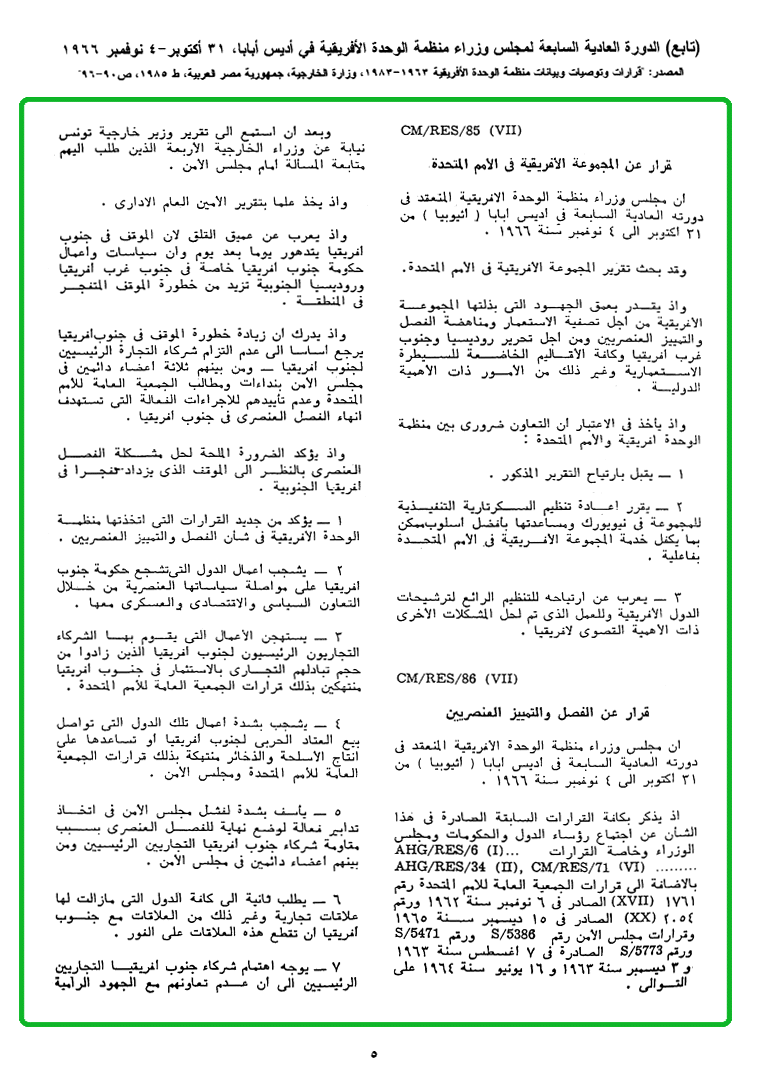 (تابع) الدورة العادية السابعة لمجلس وزراء منظمة الوحدة الأفريقية في أديس أبابا، ٣١ أكتوبر-٤ نوفمبر ١٩٦٦
المصدر: "قرارات وتوصيات وبيانات منظمة الوحدة الأفريقية ١٩٦٣-١٩٨٣، وزارة الخارجية، جمهورية مصر العربية، ط ١٩٨٥، ص ٩٠-٩٦"
CM/RES/85 (VII)
قرار عن المجموعة الأفريقية فى الأمم المتحدة
ان مجلس وزراء منظمة الوحدة الافريقية المنعقد فى
دورته العادية السابعة فى اديس ابابا ( اثيوبيا ) من
٣١ اكتوبر الى ٤ نوفمبر سنة ١٩٦٦ .
وقد بحث تقرير المجموعة الأفريقية فى الأمم المتحدة.
واذ يقــدر بعمق الجهـود التى بذلتها المجموعــة
الأفريقية من أجل تصفية الاستعمار ومناهضة الفصل
والتمييز العنصريين ومن اجل تحرير روديسيا وجنوب
غرب أفريقيا وكافة الأقــاليم الخاضــعة للســيطرة
الاســتعمارية وغير ذلك من الأمــور ذات الأهمية
الدوليــة .
واذ يأخذ فى الاعتبار أن التعاون ضرورى بين منظمة
الوحدة افريقية والأمم المتحدة :
١ — يقبل بارتياح التقرير المذكور .
٢ — يقرر اعــادة تنظيم الســكرتارية التنفيــذية
للمجموعة فى نيويورك ومساعدتها بأفضل اسلوب ممكن
بما يكفل خدمة المجموعة الأفــريقية فى الأمم المتحــدة
بفاعلية .
٣ — يعرب عن ارتياحه للتنظيم الرائع لترشيحات
الدول الأفريقية وللعمل الذى تم لحل المشكلات الأخرى
ذات الأهمية القصوى لافريقيا .
CM/RES/86 (VII)
قرار عن الفصل والتمييز العنصريين
ان مجلس وزراء منظمة الوحدة الافريقية المنعقد فى
دورته العادية السابعة فى اديس ابابا ( أثيوبيا ) من
٣١ اكتوبر الى ٤ نوفمبر سنة ١٩٦٦ .
اذ يذكر بكافة القرارات السابقة الصادرة فى هذا
الشأن عن اجتماع رؤساء الدول والحكومات ومجلس
الوزراء وخاصة القرارات AHG/RES/6 (I)...
AHG/RES/34 (II), CM/RES/71 (VI) .........
بالاضافة الى قرارات الجمعية العامة للأمم المتحدة رقم
١٧٦١ (XVII) الصادر فى ٦ نوفمبر سنة ١٩٦٢ ورقم
٢٠٥٤ (XX) الصادر فى ١٥ ديسمبر ســنة ١٩٦٥
وقرارات مجلس الأمن رقم S/5386 ورقم S/5471
ورقم S/5773 الصادرة فى ٧ أغسطس سنة ١٩٦٣
و ٣ ديسمبر سنة ١٩٦٣ و ١٦ يونيو سنة ١٩٦٤ على
التــوالى .
وبعد أن استمع الى تقرير وزير خارجية تونس
نيابة عن وزراء الخارجية الأربعة الذين طلب اليهم
متابعة المسألة أمام مجلس الأمن .
واذ يخذ علما بتقرير الأمين العام الادارى .
واذ يعرب عن عميق القلق لان الموقف فى جنوب
افريقيا يتدهور يوما بعد يوم وأن سياسات وأعمال
حكومة جنوب أفريقيا خاصة فى جنوب غرب أفريقيا
وروديسيا الجنوبية تزيد من خطورة الموقف المتفجــر
فى المنطقــة .
واذ يدرك أن زيادة خطورة الموقف فى جنوب أفريقيا
يرجع أساسا الى عدم التزام شركاء التجارة الرئيسيين
لجنوب افريقيا — ومن بينهم ثلاثة اعضاء دائمين فى
مجلس الأمن بنداءات ومطالب الجمعية العامة للأمم
المتحدة وعدم تأييدهم للاجراءات الفعالة التى تستهدف
انهاء الفصل العنصرى فى جنوب افريقيا .
واذ يؤكد الضرورة الملحة لحل مشــكلة الفصــل
العنصرى بالنظر الى الموقف الذى يزداد تفجرا فى
افريقيا الجنوبية .
١ — يؤكد من جديد القرارات التى اتخذتها منظمــة
الوحدة الأفريقية فى شأن الفصل والتمييز العنصريين .
٢ — يشجب أعمال الدول التى تشجع حكومة جنوب
افريقيا على مواصلة سياساتها العنصرية من خــلال
التعاون السياسى والاقتصادى والعسكرى معها .
٣ — يستهجن الأعمال التى يقــوم بهــا الشركاء
التجاريون الرئيسيون لجنوب أفريقيا الذين زادوا من
حجم تبادلهم التجــارى بالاستثمار فى جنــوب أفريقيا
منتهكين بذلك قرارات الجمعية العامة للأمم المتحدة .
٤ — يشجب بشدة أعمال تلك الدول التى تواصل
بيع العتاد الحربى لجنوب أفريقيا أو تساعدها على
انتاج الأسلحة والذخائر منتهكة بذلك قرارات الجمعية
العامة للأمم المتحدة ومجلس الأمن .
٥ — يأسف بشدة لفشل مجلس الأمن فى اتخــاذ
تدابير فعالة لوضع نهاية للفصــل العنصرى بســبب
مقاومة شركاء جنوب أفريقيا التجاريين الرئيسيين ومن
بينهم أعضاء دائمين فى مجلس الأمن .
٦ — يطلب ثانية الى كافة الدول التى مازالت لها
علاقات تجارية وغير ذلك من العلاقات مع جنــوب
أفريقيا أن تقطع هذه العلاقات على الفور .
٧ — يوجه اهتمام شركاء جنوب أفريقيــا التجاريين
الرئيسيين الى أن عــدم تعاونهم مع الجهود الرامية
٥